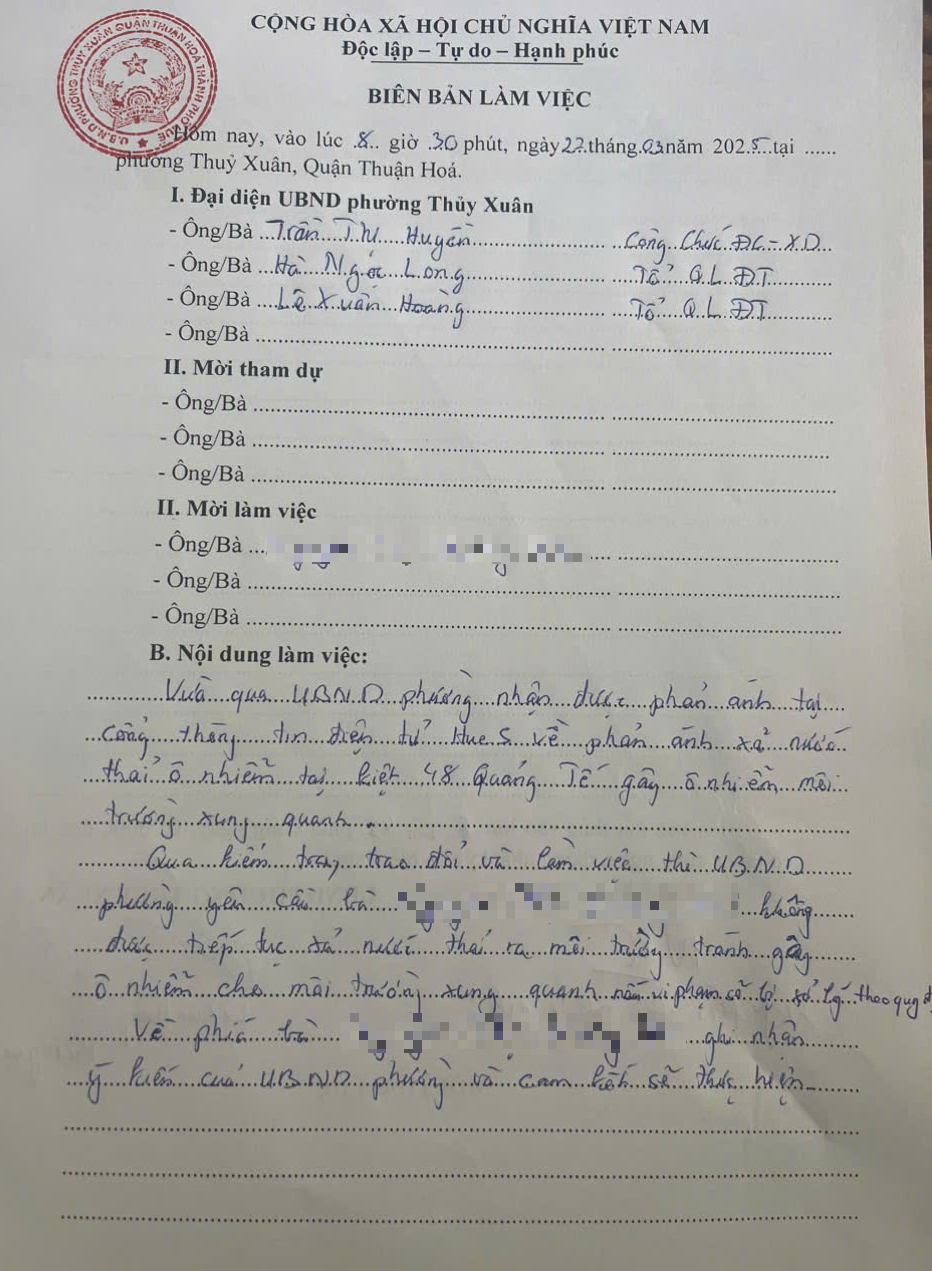 CỘNG HÒA XÃ HỘI CHỦ NGHĨA VIỆT NAM
Độc lập – Tự do – Hạnh phúc
U.B.N.D PHƯỜNG THUỶ XUÂN QUẬN THUẬN HOÁ THÀNH PHỐ HUẾ
BIÊN BẢN LÀM VIỆC
Hôm nay, vào lúc .8.. giờ .30 phút, ngày 22.tháng.03năm 202.5...tại ......
phường Thuỷ Xuân, Quận Thuận Hoá.
I. Đại diện UBND phường Thủy Xuân
- Ông/Bà ...Trần Thị Huyền ... Công Chức ĐC-XD
- Ông/Bà ...Hà Ngọc Long ... Tổ QLĐT
- Ông/Bà ...Lê Xuân Hoàng ... Tổ QLĐT
- Ông/Bà ...
II. Mời tham dự
- Ông/Bà ...
- Ông/Bà ...
- Ông/Bà ...
II. Mời làm việc
- Ông/Bà ...
- Ông/Bà ...
- Ông/Bà ...
B. Nội dung làm việc:
Vừa qua UBND phường nhận được phản ánh tại
Cổng thông tin điện tử Hue S về phản ánh xả nước
thải ô nhiễm tại kiệt 48 Quảng Tế gây ô nhiễm môi
trường xung quanh.
Qua kiểm tra, trao đổi và làm việc thì UBND
phường yêu cầu bà không
được tiếp tục xả nước thải ra môi trường tránh gây
ô nhiễm cho môi trường xung quanh nếu vi phạm sẽ bị xử lý theo quy đ
Về phía bà ghi nhận
ý kiến của UBND phường và cam kết sẽ thực hiện.